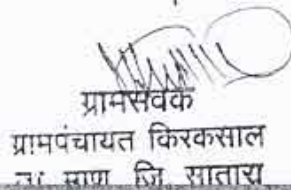 ग्रामसेवक
ग्रामपंचायत किरकसाल
ता. माण जि. सातारा